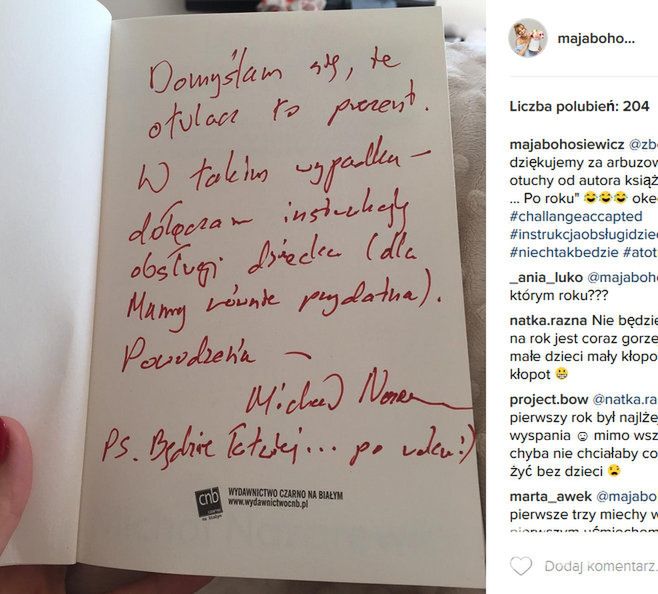 Domyślam się, że
otulacz to prezent.
W takim wypadku –
dołączam instrukcję
obsługi dziecka (dla
Mamy równie przydatna).
Powodzenia –
Michał
Ps. Będzie łatwiej... po roku :)
cnb
czarno
na białym
WYDAWNICTWO CZARNO NA BIAŁYM
www.wydawnictwocnb.pl
majaboho...
Liczba polubień: 204
majabohosiewicz @zbo
dziękujemy za arbuzow
otuchy od autora książ
... Po roku" 😂😂😂 oke
#challangeaccapted
#instrukcjaobsługidziec
#niechtakbedzie #atot
_ania_luko @majaboho
którym roku???
natka.razna Nie będzie
na rok jest coraz gorze
małe dzieci mały kłopo
kłopot 😬
project.bow @natka.ra
pierwszy rok był najlżej
wyspania ☺ mimo wsz
chyba nie chciałaby co
żyć bez dzieci 😩
marta_awek @majabo
pierwsze trzy miechy w
pierwszym uśmiechem
Dodaj komentarz.